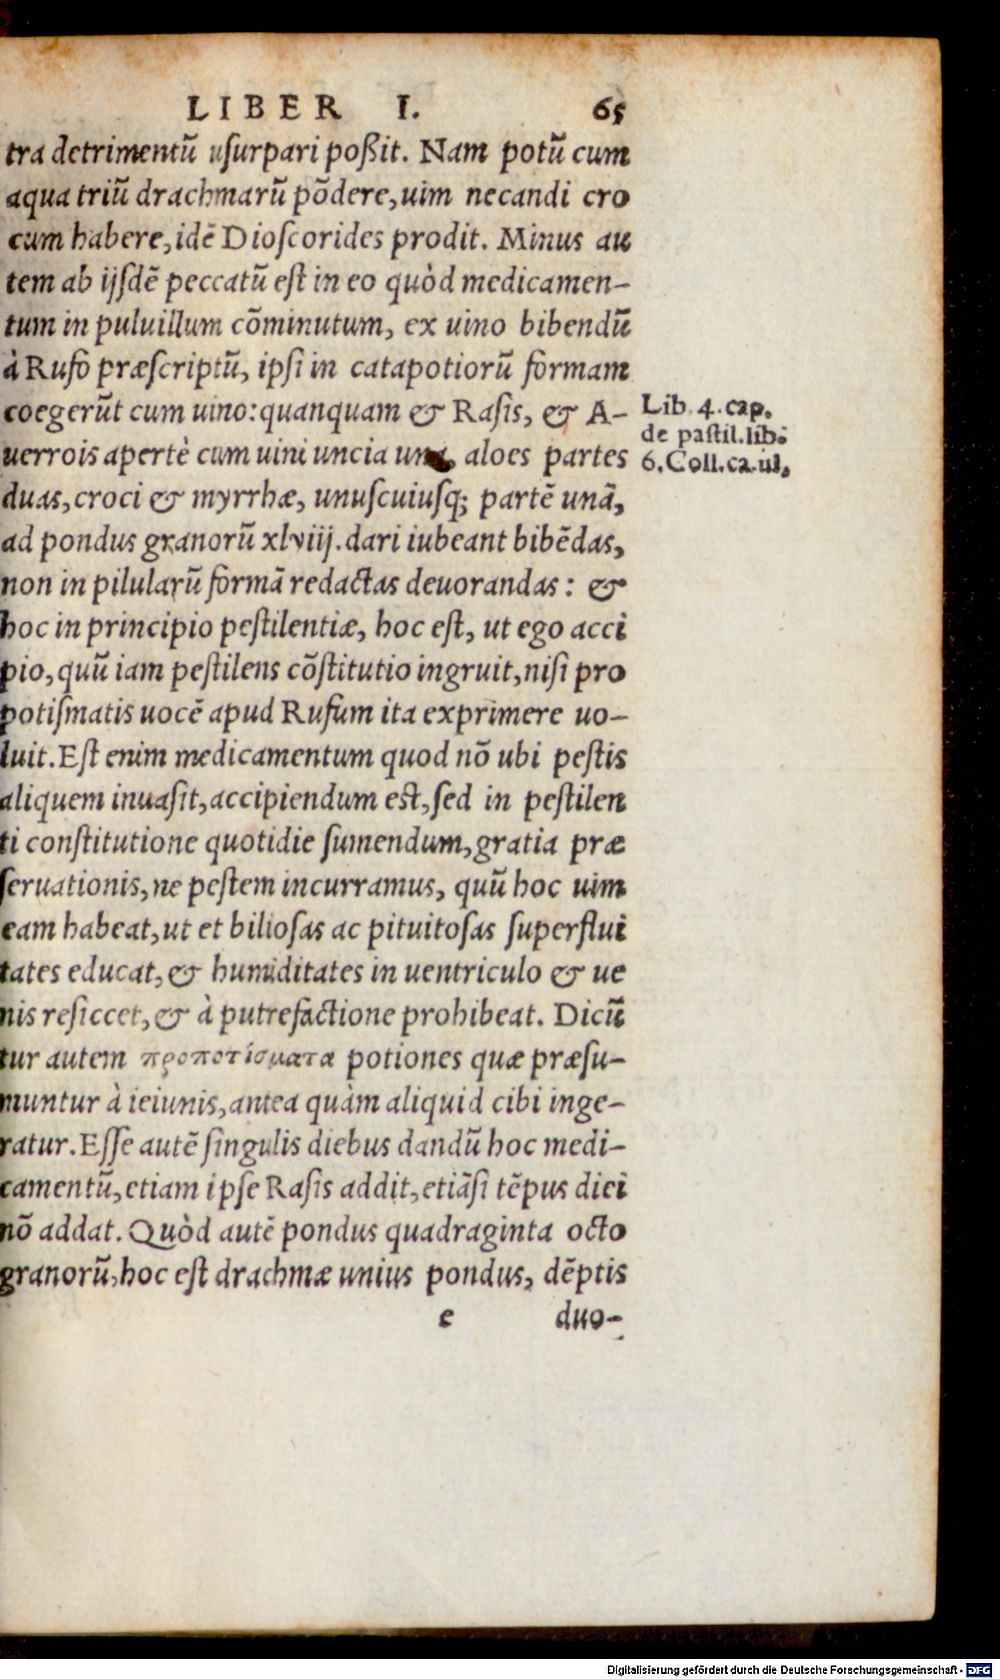 LIBER I. 65
tra detrimentũ uſurpari poßit. Nam potũ cum
aqua triũ drachmarũ põdere, uim necandi cro
cum habere, idẽ Dioſcorides prodit. Minus au
tem ab ijſdẽ peccatũ eſt in eo quòd medicamen-
tum in puluillum cõminutum, ex uino bibendũ
à Rufo præſcriptũ, ipſi in catapotiorũ formam
coegerũt cum uino: quanquam & Raſis, & A-
uerrois apertè cum uini uncia una, aloes partes
duas, croci & myrrhæ, unuſcuiuſq; partẽ unã,
ad pondus granorũ xlviij. dari iubeant bibẽdas,
non in pilularũ formã redactas deuorandas: &
hoc in principio peſtilentiæ, hoc eſt, ut ego acci
pio, quũ iam peſtilens cõſtitutio ingruit, niſi pro
potiſmatis uocẽ apud Rufum ita exprimere uo-
luit. Eſt enim medicamentum quod nõ ubi peſtis
aliquem inuaſit, accipiendum eſt, ſed in peſtilen
ti conſtitutione quotidie ſumendum, gratia præ
ſeruationis, ne peſtem incurramus, quũ hoc uim
eam habeat, ut et bilioſas ac pituitoſas ſuperflui
tates educat, & humiditates in uentriculo & ue
nis reſiccet, & à putrefactione prohibeat. Dicũ
tur autem προποτίσματα potiones quæ præſu-
muntur à ieiunis, antea quàm aliquid cibi inge-
ratur. Eſſe autẽ ſingulis diebus dandũ hoc medi-
camentũ, etiam ipſe Raſis addit, etiãſi tẽpus diei
nõ addat. Quòd autẽ pondus quadraginta octo
granorũ, hoc eſt drachmæ unius pondus, dẽptis
e duo-
Lib. 4. cap.
de paſtil. lib.
6. Coll. ca. ul.
Digitalisierung gefördert durch die Deutsche Forschungsgemeinschaft - DFG